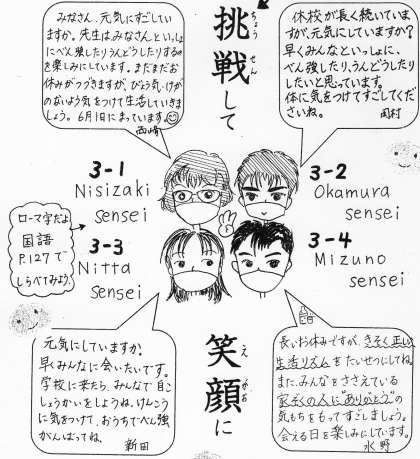 みなさん、元気にすごしてい
ますか。先生はみなさんといっしょ
にべん強したりうんどうしたりするの
を楽しみにしています。まだまだお
休みがつづきますが、びょう気・けが
のないよう気をつけて生活していきま
しょう。6月1日にまっています。
西崎
ちょう せん
挑戦して
休校が長く続いていま
すが、元気にしていますか?
早くみんなといっしょに、
べん強したり、うんどうしたり
したいと思っています。
体に気をつけてすごしてくだ
さいね。
岡村
3-1
Nisizaki
sensei
3-2
Okamura
sensei
ローマ字だよ
国語
P.127で
しらべてみよう。
3-3
Nitta
sensei
3-4
Mizuno
sensei
元気にしていますか?
早くみんなに会いたいです。
学校に来たら、みんなで自こ
しょうかいをしようね。けんこう
に気をつけて、おうちでべん強
がんばってね。
新田
え がお
笑顔に
長いお休みですが、きそく正しい
生活リズムをたいせつにしてね。
また、みんなをささえている
家ぞくの人に"ありがとう"の
気もちをもってすごしましょう。
会える日を楽しみにしています。
水野